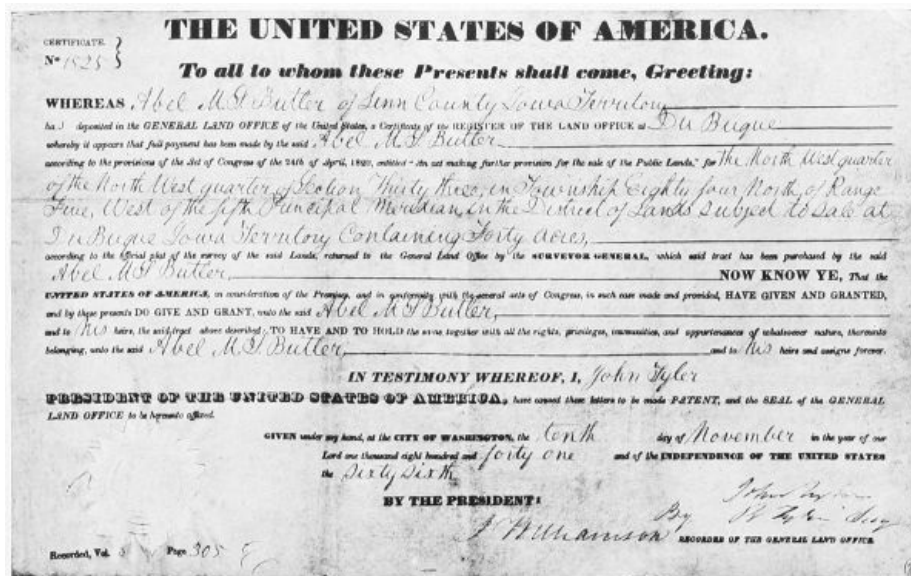 THE UNITED STATES OF AMERICA.
CERTIFICATE.
No 1525
To all to whom these Presents shall come, Greeting:
WHEREAS Abel M. S. Butler of Linn County Iowa Territory
ha s deposited in the GENERAL LAND OFFICE of the United States, a Certificate of the REGISTER OF THE LAND OFFICE at Du Buque
whereby it appears that full payment has been made by the said Abel M. S. Butler
according to the provisions of the Act of Congress of the 24th of April, 1820, entitled "An act making further provision for the sale of the Public Lands," for The North West quarter
of the North West quarter of Section Thirty three, in Township Eighty four North, of Range
Five, West of the fifth Principal Meridian, in the District of Lands subject to Sale at
Du Buque Iowa Territory Containing Forty acres,
according to the official plat of the survey of the said Lands, returned to the General Land Office by the SURVEYOR GENERAL, which said tract has been purchased by the said
Abel M. S. Butler, NOW KNOW YE, That the
UNITED STATES OF AMERICA, in consideration of the Premises, and in conformity with the several acts of Congress, in such case made and provided, HAVE GIVEN AND GRANTED,
and by these presents DO GIVE AND GRANT, unto the said Abel M. S. Butler,
and to his heirs, the said tract above described; TO HAVE AND TO HOLD the same together with all the rights, privileges, immunities, and appurtenances of whatsoever nature, thereunto
belonging, unto the said Abel M. S. Butler, and to his heirs and assigns forever.
IN TESTIMONY WHEREOF, I, John Tyler
PRESIDENT OF THE UNITED STATES OF AMERICA, have caused these letters to be made PATENT, and the SEAL of the GENERAL
LAND OFFICE to be hereunto affixed.
GIVEN under my hand, at the CITY OF WASHINGTON, the tenth day of November in the year of our
Lord one thousand eight hundred and forty one and of the INDEPENDENCE OF THE UNITED STATES
the Sixty Sixth
BY THE PRESIDENT: John Tyler
By R Tyler Secy
J Williamson RECORDER OF THE GENERAL LAND OFFICE
Recorded, Vol. 5 Page 305